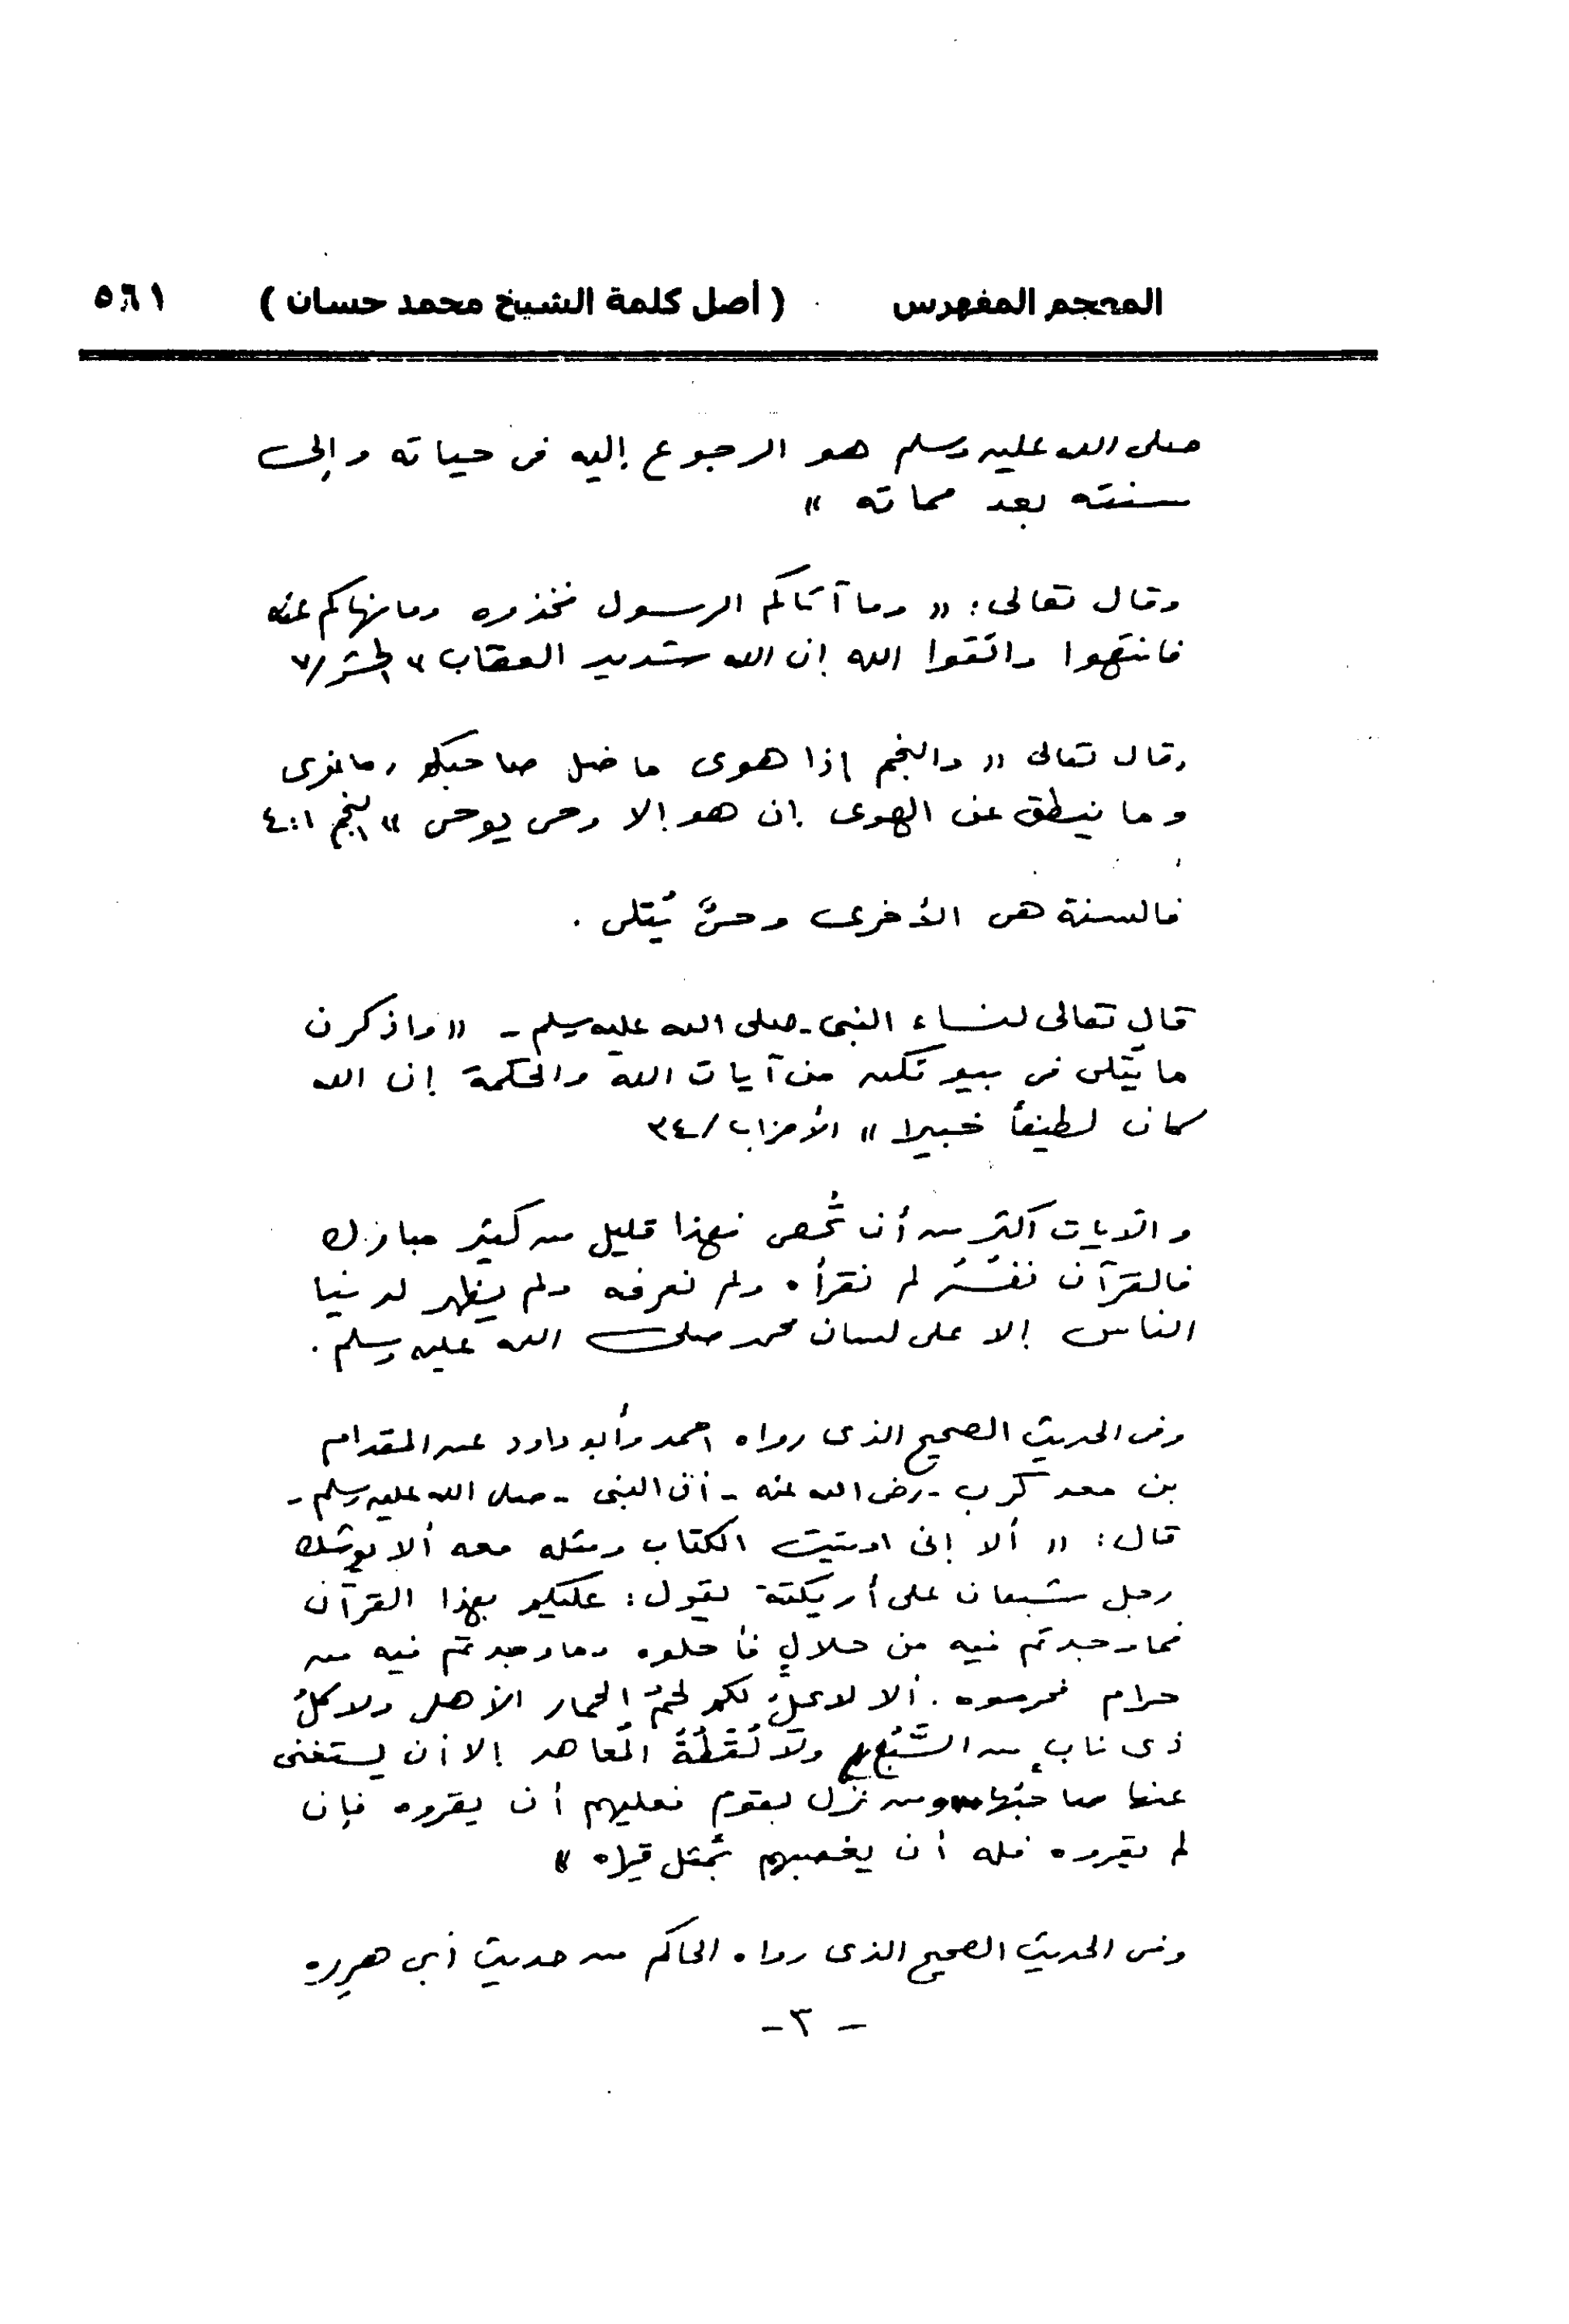 المعجم المفهرس ( أصل كلمة الشيخ محمد حسان ) ٥٦١
صلى الله عليه وسلم هو الرجوع إليه فى حياته وإلى
سنته بعد مماته »
وقال تعالى: « وما آتاكم الرسول فخذوه وما نهاكم عنه
فانتهوا واتقوا الله إن الله شديد العقاب » الحشر/٧
وقال تعالى « والنجم إذا هوى ما ضل صاحبكم وما غوى
وما ينطق عن الهوى إن هو إلا وحى يوحى » النجم ٤:١
فالسنة هى الأخرى وحىٌ يُتلى .
قال تعالى لنساء النبى - صلى الله عليه وسلم - « واذكرن
ما يُتلى فى بيوتكن من آيات الله والحكمة إن الله
كان لطيفاً خبيرا » الأحزاب/٣٤
والآيات أكثر من أن تُحصى فهذا قليل من كثير مبارك
فالقرآن نفسُه لم نقرأه ولم نعرفه ولم يظهر لدنيا
الناس إلا على لسان محمد صلى الله عليه وسلم .
وفى الحديث الصحيح الذى رواه أحمد وأبو داود عن المقدام
بن معد كرب - رضى الله عنه - أن النبى - صلى الله عليه وسلم -
قال: « ألا إنى اوتيت الكتاب ومثله معه ألا يوشك
رجل شبعان على أريكته يقول: عليكم بهذا القرآن
فما وجدتم فيه من حلالٍ فأحلوه وما وجدتم فيه من
حرام فحرموه . ألا لا يحلُ لكم لحمُ الحمار الأهلى ولا كلُ
ذى نابٍ من السَّبُع ولا لُقَطَةُ المُعاهد إلا أن يستغنى
عنها صاحبُها ومن نزل بقومٍ فعليهم أن يقروه فإن
لم يقروه فله أن يغصبهم بمثل قراه »
وفى الحديث الصحيح الذى رواه الحاكم من حديث أبى هريرة
- ٣ -